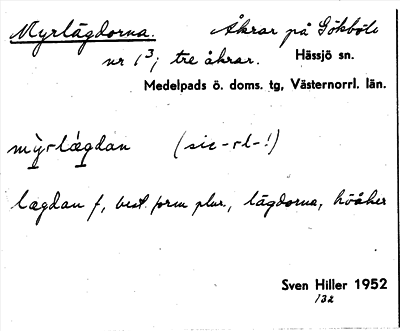 Myrlägdorna. Åkrar på Gökböle
nr 1³; tre åkrar. Hässjö sn.
Medelpads ö. doms. tg, Västernorrl. län.
mỳrlǽgdan (sic -rl-!)
lægdan f, best. form plur., lägdorna, höåker
Sven Hiller 1952
132